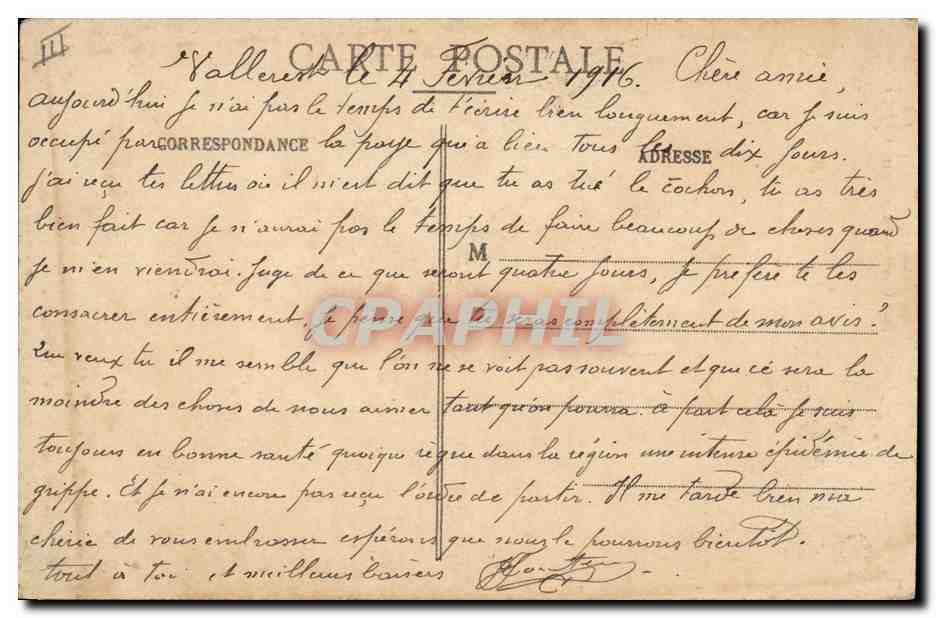 III
CARTE POSTALE
le 4 Fevrier 1916. Chère amie,
aujourd'hui je n'ai pas le temps de t'écrire bien longuement, car je suis
occupé par la paye qui a lieu tous les dix jours.
CORRESPONDANCE
ADRESSE
j'ai reçu tes lettres où il m'est dit que tu as tué le cochon, tu as très
bien fait car je n'aurai pas le temps de faire beaucoup de choses quand
M
je m'en viendrai. Juge de ce que seront quatre jours, je préfère te les
consacrer entièrement. je pense que tu seras complètement de mon avis?
CPAPHIL
Que veux tu il me semble que l'on ne se voit pas souvent et que ce sera la
moindre des choses de nous aimer tant qu'on pourra. à part cela je suis
toujours en bonne santé quoique règne dans la région une intense épidémie de
grippe. Et je n'ai encore pas reçu l'ordre de partir. Il me tarde bien ma
chérie de vous embrasser espérons que nous le pourrons bientôt.
tout à toi et meilleurs baisers